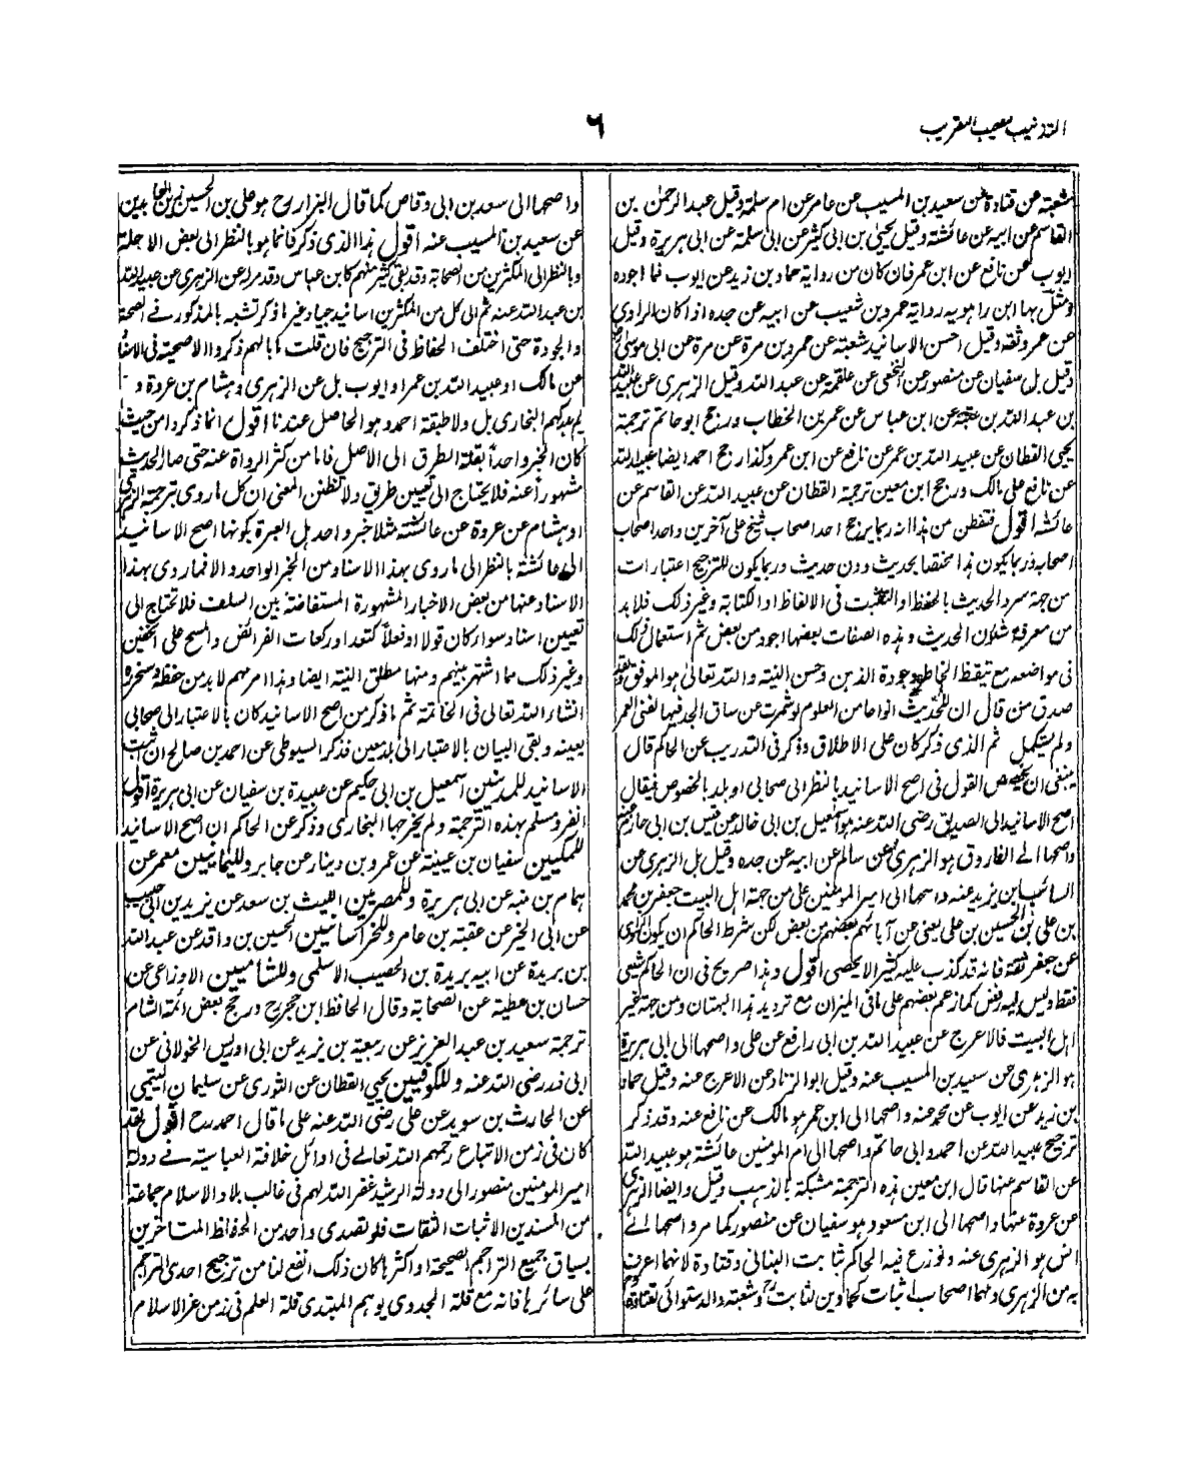 التذنيب معجب التقريب
٦
شعبة عن قتادة عن سعيد بن المسيب عن عامر عن ام سلمة وقيل عبد الرحمٰن بن
القاسم عن ابيه عن عائشة وقيل يحيىٰ بن ابى كثير عن ابى سلمة عن ابى هريرة وقيل
ايوب عن نافع عن ابن عمر فان كان من رواية حماد بن زيد عن ايوب فما اجوده
ومثل بها ابن راهويه رواية عمرو بن شعيب عن ابيه عن جده اذا كان الراوى
عن عمرو ثقة وقيل احسن الاسانيد شعبة عن عمرو بن مرة عن مرة عن ابى موسىٰ
وقيل بل سفيان عن منصور عن النخعى عن علقمة عن عبد الله وقيل الزهرى عن عبيد الله
بن عبد الله بن عتبة عن ابن عباس عن عمر بن الخطاب ورجح ابو حاتم ترجمة
يحيى القطان عن عبيد الله بن عمر عن نافع عن ابن عمر وكذا رجح احمد ايضا عبيد الله
عن نافع على مالك ورجح ابن معين ترجمة القطان عن عبيد الله عن القاسم عن
عائشة اقول فتفطن من هذا انه ربما يرجح احد اصحاب شيخ على آخرين واحد اصحاب
اصحابه وربما يكون هذا مختصا بحديث دون حديث وربما يكون للترجيح اعتبارات
من جهة سرد الحديث بالحفظ او التثبت فى الالفاظ او الكتابة وغير ذلك فلا بد
من معرفة شئون الحديث وهذه الصفات بعضها اجود من بعض ثم استعمال ذلك
فى مواضعه مع تيقظ الخاطر وجودة الذهن وحسن النية والله تعالىٰ هو الموفق ولقد
صدق من قال ان للحديث انواعا من العلوم لو شمرت عن ساق الجد فيها لفنى العمر
ولم يستكمل ثم الذى ذكر كان على الاطلاق وذكر فى التدريب عن الحاكم قال
ينبغى ان يخصص القول فى اصح الاسانيد بالنظر الى صحابى او بلد بالخصوص فيقال
اصح الاسانيد الى الصديق رضى الله عنه هو اسمٰعيل بن ابى خالد عن قيس بن ابى حازم عنه
واصحها الے الفاروق هو الزهرى عن سالم عن ابيه عن جده وقيل بل الزهرى عن
السائب بن يزيد عنه واصحها الى امير المؤمنين على من جهة اهل البيت جعفر بن محمد
بن على بن الحسين بن على يعنى عن آبائهم بعضهم من بعض لكن شرط الحاكم ان يكون الراوى
عن جعفر ثقة فانه قد كذب عليه كثير لا يحصى اقول وهذا صريح فى ان الحاكم شيعى
فقط وليس فيه رفض كما زعم بعضهم على ما فى الميزان مع ترديد هذا البهتان ومن جهة غير
اهل البيت فالاعرج عن عبيد الله بن ابى رافع عن على واصحها الى ابى هريرة
هو الزهرى عن سعيد بن المسيب عنه وقيل ابو الزناد عن الاعرج عنه وقيل حماد
بن زيد عن ايوب عن محمد عنه واصحها الى ابن عمر هو مالك عن نافع عنه وقد ذكر
ترجيح عبيد الله عن احمد وابى حاتم واصحها الى ام المؤمنين عائشة هو عبيد الله
عن القاسم عنها قال ابن معين هذه الترجمة مشبكة بالذهب وقيل وايضا الزهرى
عن عروة عنها واصحها الى ابن مسعود هو سفيان عن منصور كما مر واصحها الے
انس هو الزهرى عنه ونوزع فيه الحاكم ثابت البنانى وقتادة لانهما اعرف
به من الزهرى ولهما اصحاب اثبات كحمادين لثابت وشعبة والدستوائى لقتادة
واصحها الى سعد بن ابى وقاص كما قال البزار رح هو على بن الحسين زين العابدين
عن سعيد بن المسيب عنه اقول هذا الذى ذكر فانما هو بالنظر الى بعض الاجلة
وبالنظر الى المكثرين من الصحابة وقد بقى كثير منهم كابن عباس وقد مر له عن الزهرى عن عبيد الله
بن عبد الله عنه ثم الى كل من المكثرين اسانيد جياد غير ما ذكر تشبه بالمذكور فے الصحة
والجودة حتى اختلف الحفاظ فى الترجيح فان قلت ما بالهم ذكروا الاصحية فى الاسناد
عن مالك او عبيد الله بن عمر او ايوب بل عن الزهرى وهشام بن عروة و
لم يدركهم البخارى بل ولا طبقة احمد وهو الحاصل عندنا اقول انما ذكروا من حيث
كان الخبر واحداً بقلة الطرق الى الاصل فاما من كثر الرواة عنه حتى صار الحديث
مشهوراً عنه فلا يحتاج الى تعيين طريق ولا تظنن المعنى ان كل ما روى بترجمة الزهرى
او هشام عن عروة عن عائشة مثلا خبر واحد بل العبرة بكونها اصح الاسانيد
الى عائشة بالنظر الى ما روى بهذا الاسناد من الخبر الواحد والا فما روى بهذا
الاسناد عنها من بعض الاخبار المشهورة المستفاضة بين السلف فلا تحتاج الى
تعيين اسناد سواء كان قولا او فعلاً كتعداد ركعات الفرائض والمسح على الخفين
وغير ذلك مما اشتهر بينهم ومنها مطلق النية ايضا وهذا امر مهم لا بد من حفظه وسنحرره
انشاء الله تعالى فى الخاتمة ثم ما ذكر من اصح الاسانيد كان بالاعتبار الى صحابى
بعينه وبقى البيان بالاعتبار الى بلد معين فذكر السيوطى عن احمد بن صالح ان اثبت
الاسانيد للمدنيين اسمعيل بن ابى حكيم عن عبيدة بن سفيان عن ابى هريرة اقول
انفرد مسلم بهذه الترجمة ولم يخرجها البخارى وذكر عن الحاكم ان اصح الاسانيد
للمكيين سفيان بن عيينة عن عمرو بن دينار عن جابر ولليمانيين معمر عن
همام بن منبه عن ابى هريرة وللمصريين الليث بن سعد عن يزيد بن ابى حبيب
عن ابى الخير عن عقبة بن عامر وللخراسانيين الحسين بن واقد عن عبد الله
بن بريدة عن ابيه بريدة بن الحصيب الاسلمى وللشاميين الاوزاعى عن
حسان بن عطية عن الصحابة وقال الحافظ ابن حجر رح ورجح بعض ائمة الشام
ترجمة سعيد بن عبد العزيز عن ربيعة بن يزيد عن ابى ادريس الخولانى عن
ابى ذر رضى الله عنه وللكوفيين يحيى القطان عن الثورى عن سليمان التيمى
عن الحارث بن سويد عن على رضى الله عنه على ما قال احمد رح اقول لقد
كان فى زمن الاتباع رحمهم الله تعالے فى اوائل خلافة العباسية فے دولة
امير المؤمنين منصور الى دولة الرشيد غفر الله لهم فى غالب بلاد الاسلام جماعة
من المسندين الاثبات الثقات فلو تصدى واحد من الحفاظ المتاخرين
بسياق جميع التراجم الصحيحة او اكثرها كان ذلك انفع لنا من ترجيح احدى التراجم
على سائرها فانه مع قلة الجدوى يوهم المبتدى قلة العلم فى زمن عز الاسلام